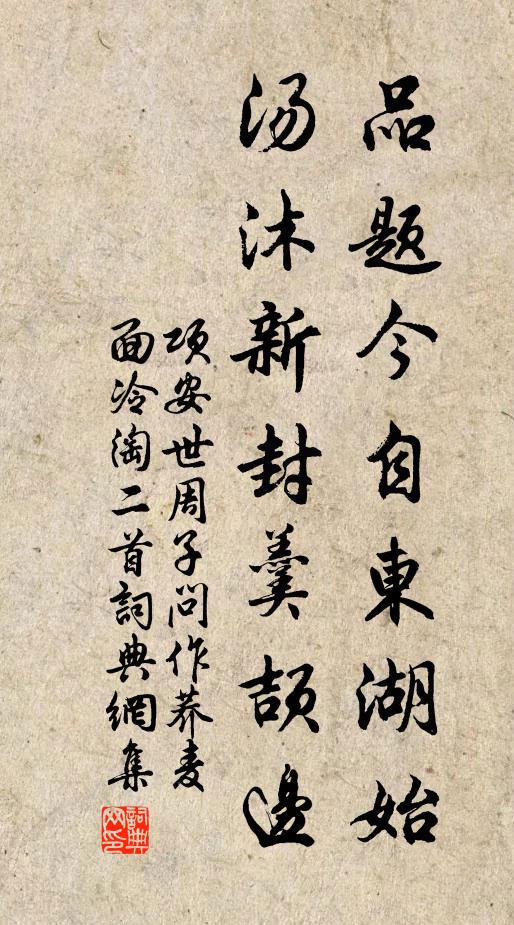 品题今自東湖始
汤沐新封羹頡邊
项安世周子问作荞麦
面冷淘二首詞典網集
詞典
网印